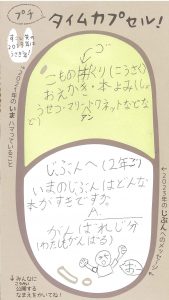 プチ
タイムカプセル!
すこし先の
2023年は
うさぎ年!
2021年のいまハマっていること
こものづくり(こうさく)
おえかき・本よみ(しょ
うせつ・マリー・アン
トワネットなどなど)
←2023年のじぶんへのメッセージ
じぶんへ(2年ごの)
いまのじぶんはどんな
本がすきですか。
A.
がんばれじぶん
(わたしもがんばる)
お〜
↓みんなに
公開する
なまえをかいてね!